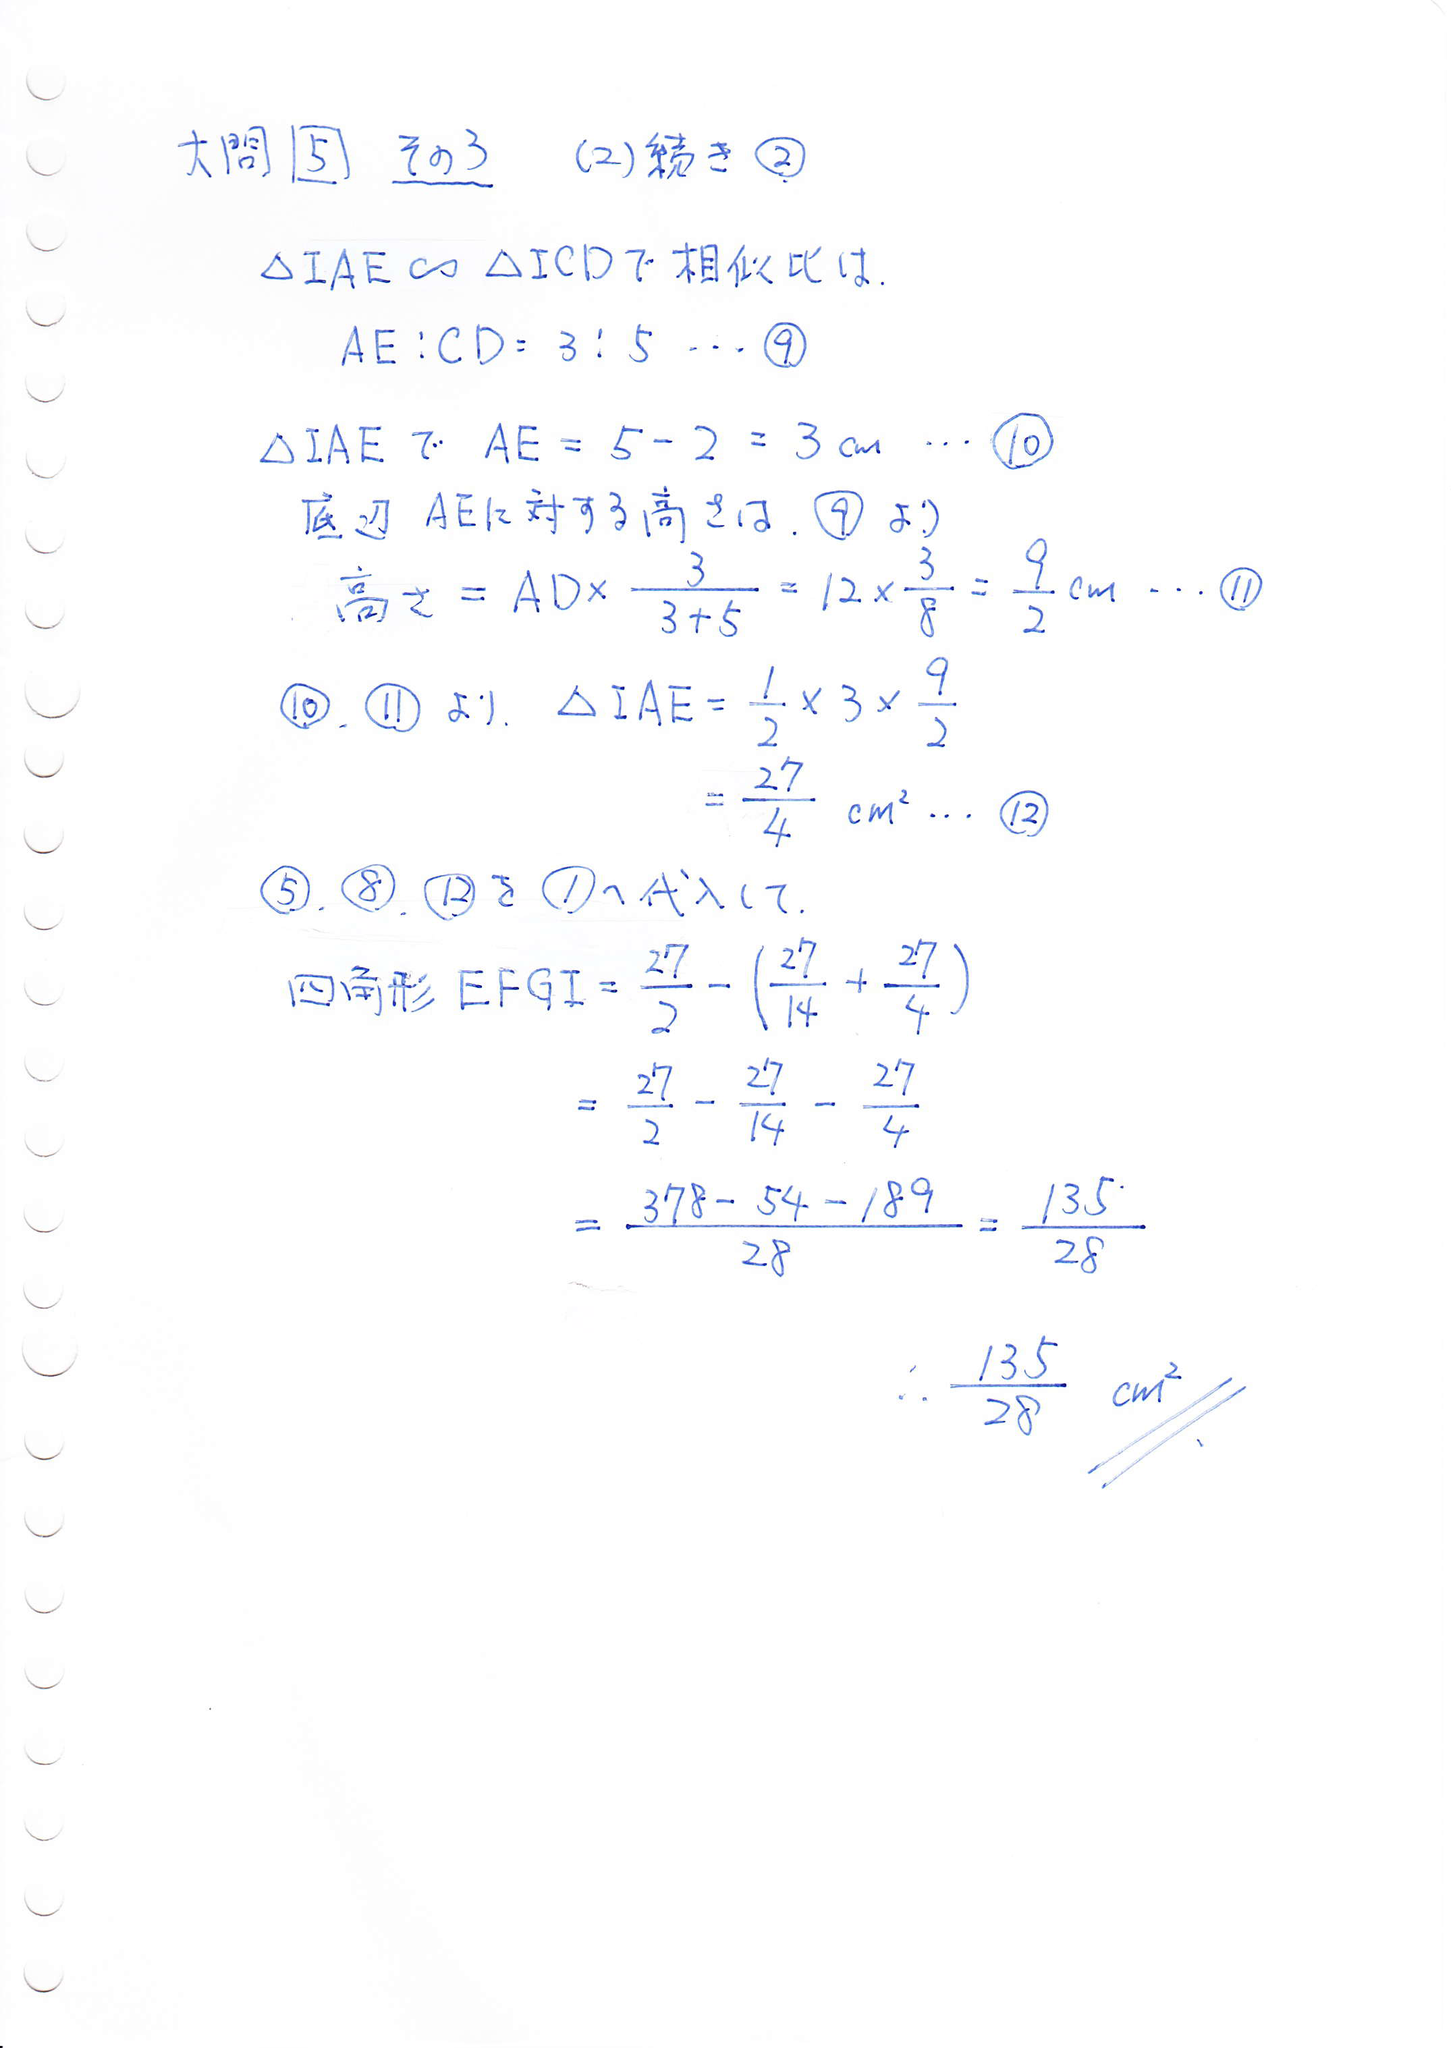 大問 5 その3 (2)続き ②
△IAE ∽ △ICDで相似比は、
AE:CD=3:5 … ⑨
△IAEで AE=5-2=3cm … ⑩
底辺 AEに対する高さは、⑨より
高さ=AD×3/(3+5)=12×3/8=9/2cm … ⑪
⑩、⑪より、△IAE=1/2×3×9/2
=27/4 cm² … ⑫
⑤、⑧、⑫を①へ代入して、
四角形 EFGI=27/2-(27/14+27/4)
=27/2-27/14-27/4
=(378-54-189)/28=135/28
∴ 135/28 cm²